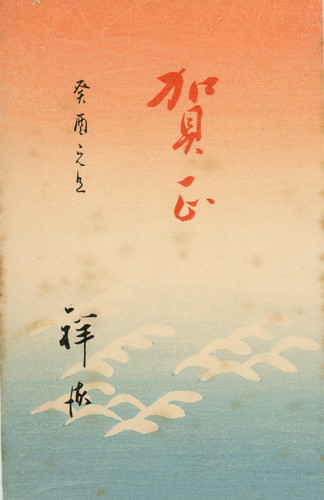 賀正
癸酉元旦
祥